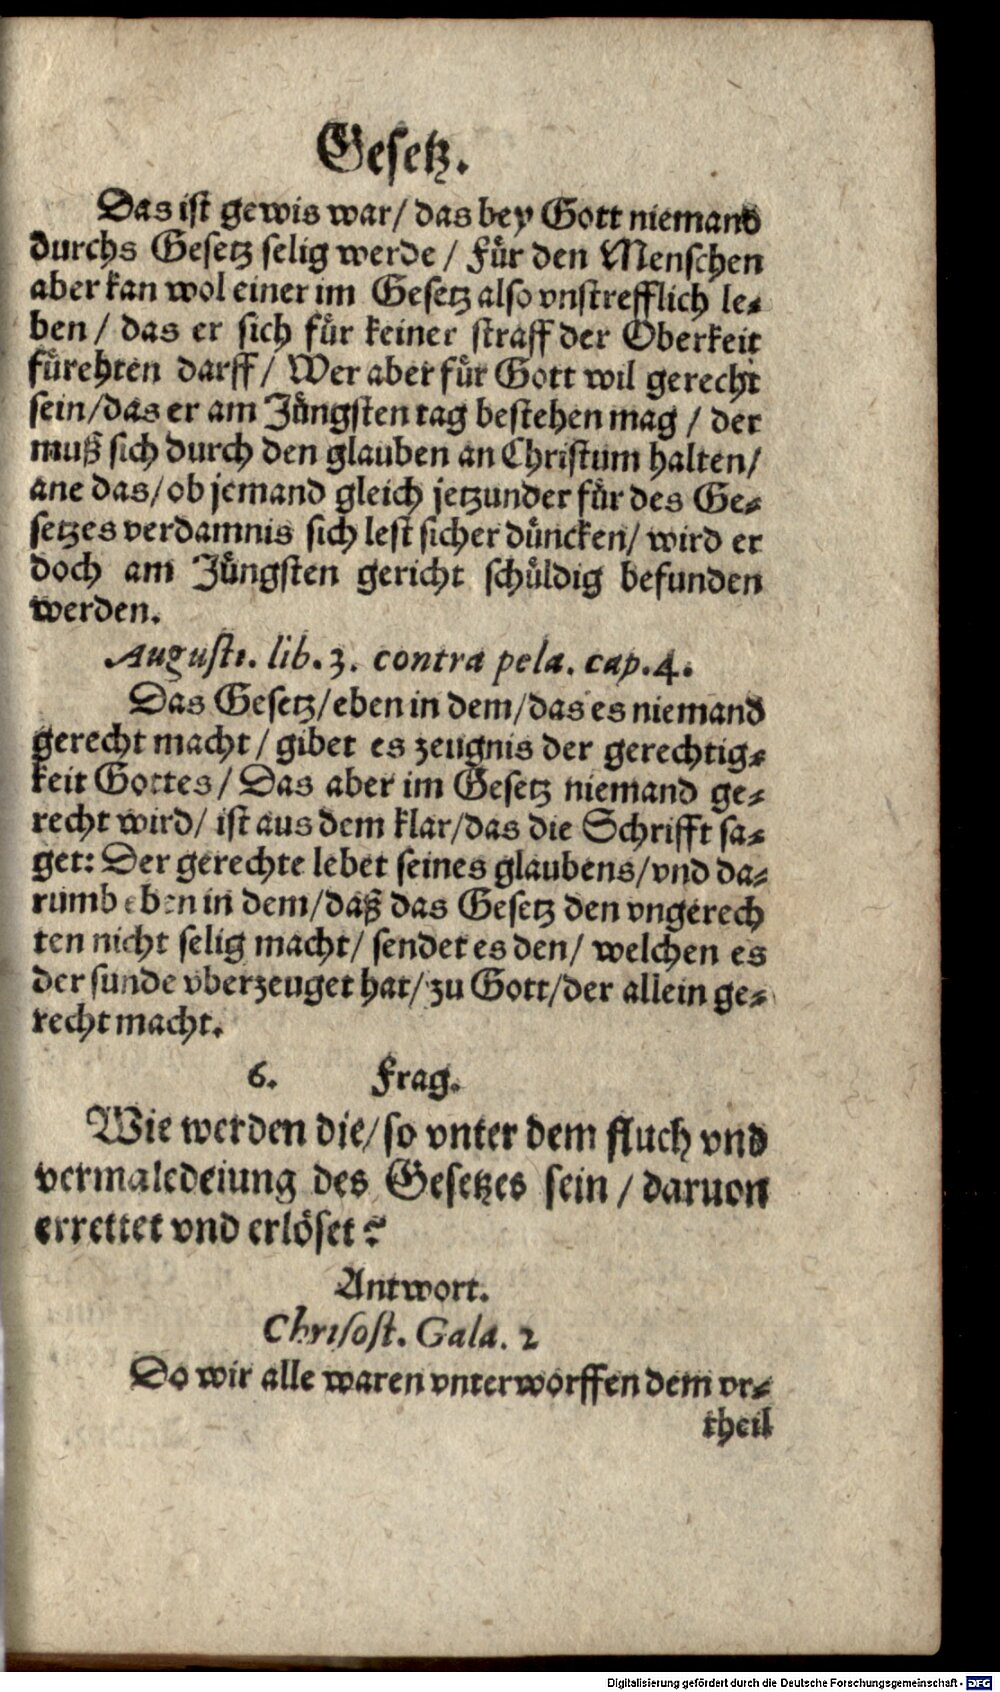 Gesetz.
Das ist gewis war/ das bey Gott niemand
durchs Gesetz selig werde / Für den Menschen
aber kan wol einer im Gesetz also vnstrefflich le-
ben / das er sich für keiner straff der Oberkeit
fürchten darff / Wer aber für Gott wil gerecht
sein/das er am Jüngsten tag bestehen mag / der
muß sich durch den glauben an Christum halten/
ane das/ ob jemand gleich jetzunder für des Ge-
setzes verdamnis sich lest sicher düncken/ wird er
doch am Jüngsten gericht schüldig befunden
werden.
Augusti. lib. 3. contra pela. cap. 4.
Das Gesetz/eben in dem/das es niemand
gerecht macht / gibet es zeugnis der gerechtig-
keit Gottes / Das aber im Gesetz niemand ge-
recht wird/ ist aus dem klar/das die Schrifft sa-
get: Der gerechte lebet seines glaubens/vnd da-
rumb eben in dem/daß das Gesetz den vngerech
ten nicht selig macht/ sendet es den/ welchen es
der sunde vberzeuget hat/ zu Gott/der allein ge-
recht macht.
6. Frag.
Wie werden die/ so vnter dem fluch vnd
vermaledeiung des Gesetzes sein / daruon
errettet vnd erlöset?
Antwort.
Chrisost. Gala. 2
Do wir alle waren vnterworffen dem vr-
theil
Digitalisierung gefördert durch die Deutsche Forschungsgemeinschaft - DFG